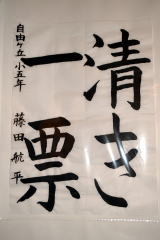 清き
一票
自由ケ丘小五年
藤田航平